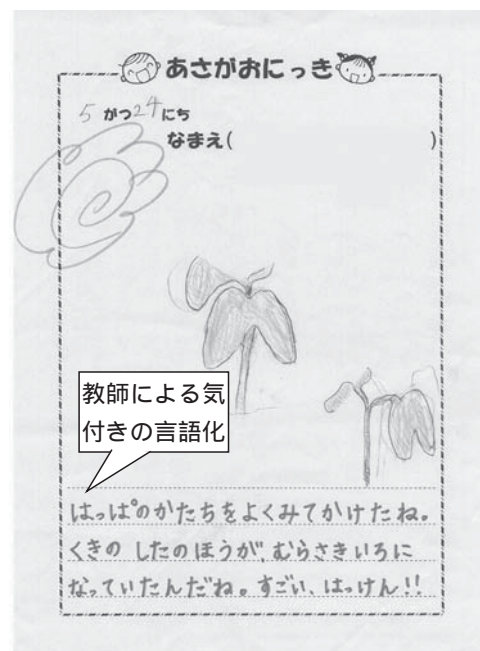 あさがおにっき
5がつ24にち
なまえ( )
教師による気
付きの言語化
はっぱのかたちをよくみてかけたね。
くきの したのほうが、むらさきいろに
なっていたんだね。すごい、はっけん!!